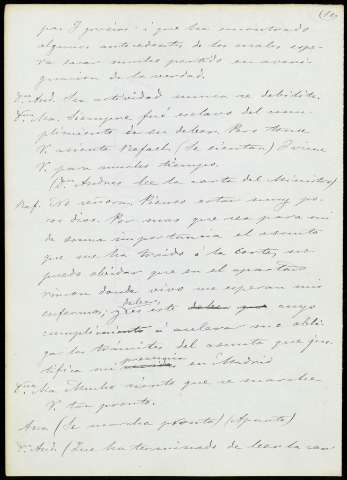 (14)
por I precios: i que ha encontrado
algunos antecedentes de los cuales espe-
ra sacar mucho partido en averi-
guacion de la verdad.
Dn. And. Su actividad nunca se debilita.
Dña. Ma. Siempre, fué esclavo del cum-
plimiento de su deber. Pero tome
V. asiento Rafael (Se sientan) Viene
V. para mucho tiempo.
(Dn. Andres lee la carta del Ministro)
Raf. No señora. Pienso estar muy po-
cos dias. Por mas que sea para mi
de suma importancia el asunto
que me ha traido á la corte, no
puedo olvidar que en el apartado
rincon donde vivo me esperan mis
enfermos; y es este deber cuyo
cumplimiento á acelerar me obli-
ga los trámites del asunto que jus-
tifica mi presencia en Madrid
Dña. Ma. Mucho siento que se marche
V. tan pronto.
Ana (Se marcha pronto) (Aparte)
Dn. And. (Que ha terminado de leer la car-